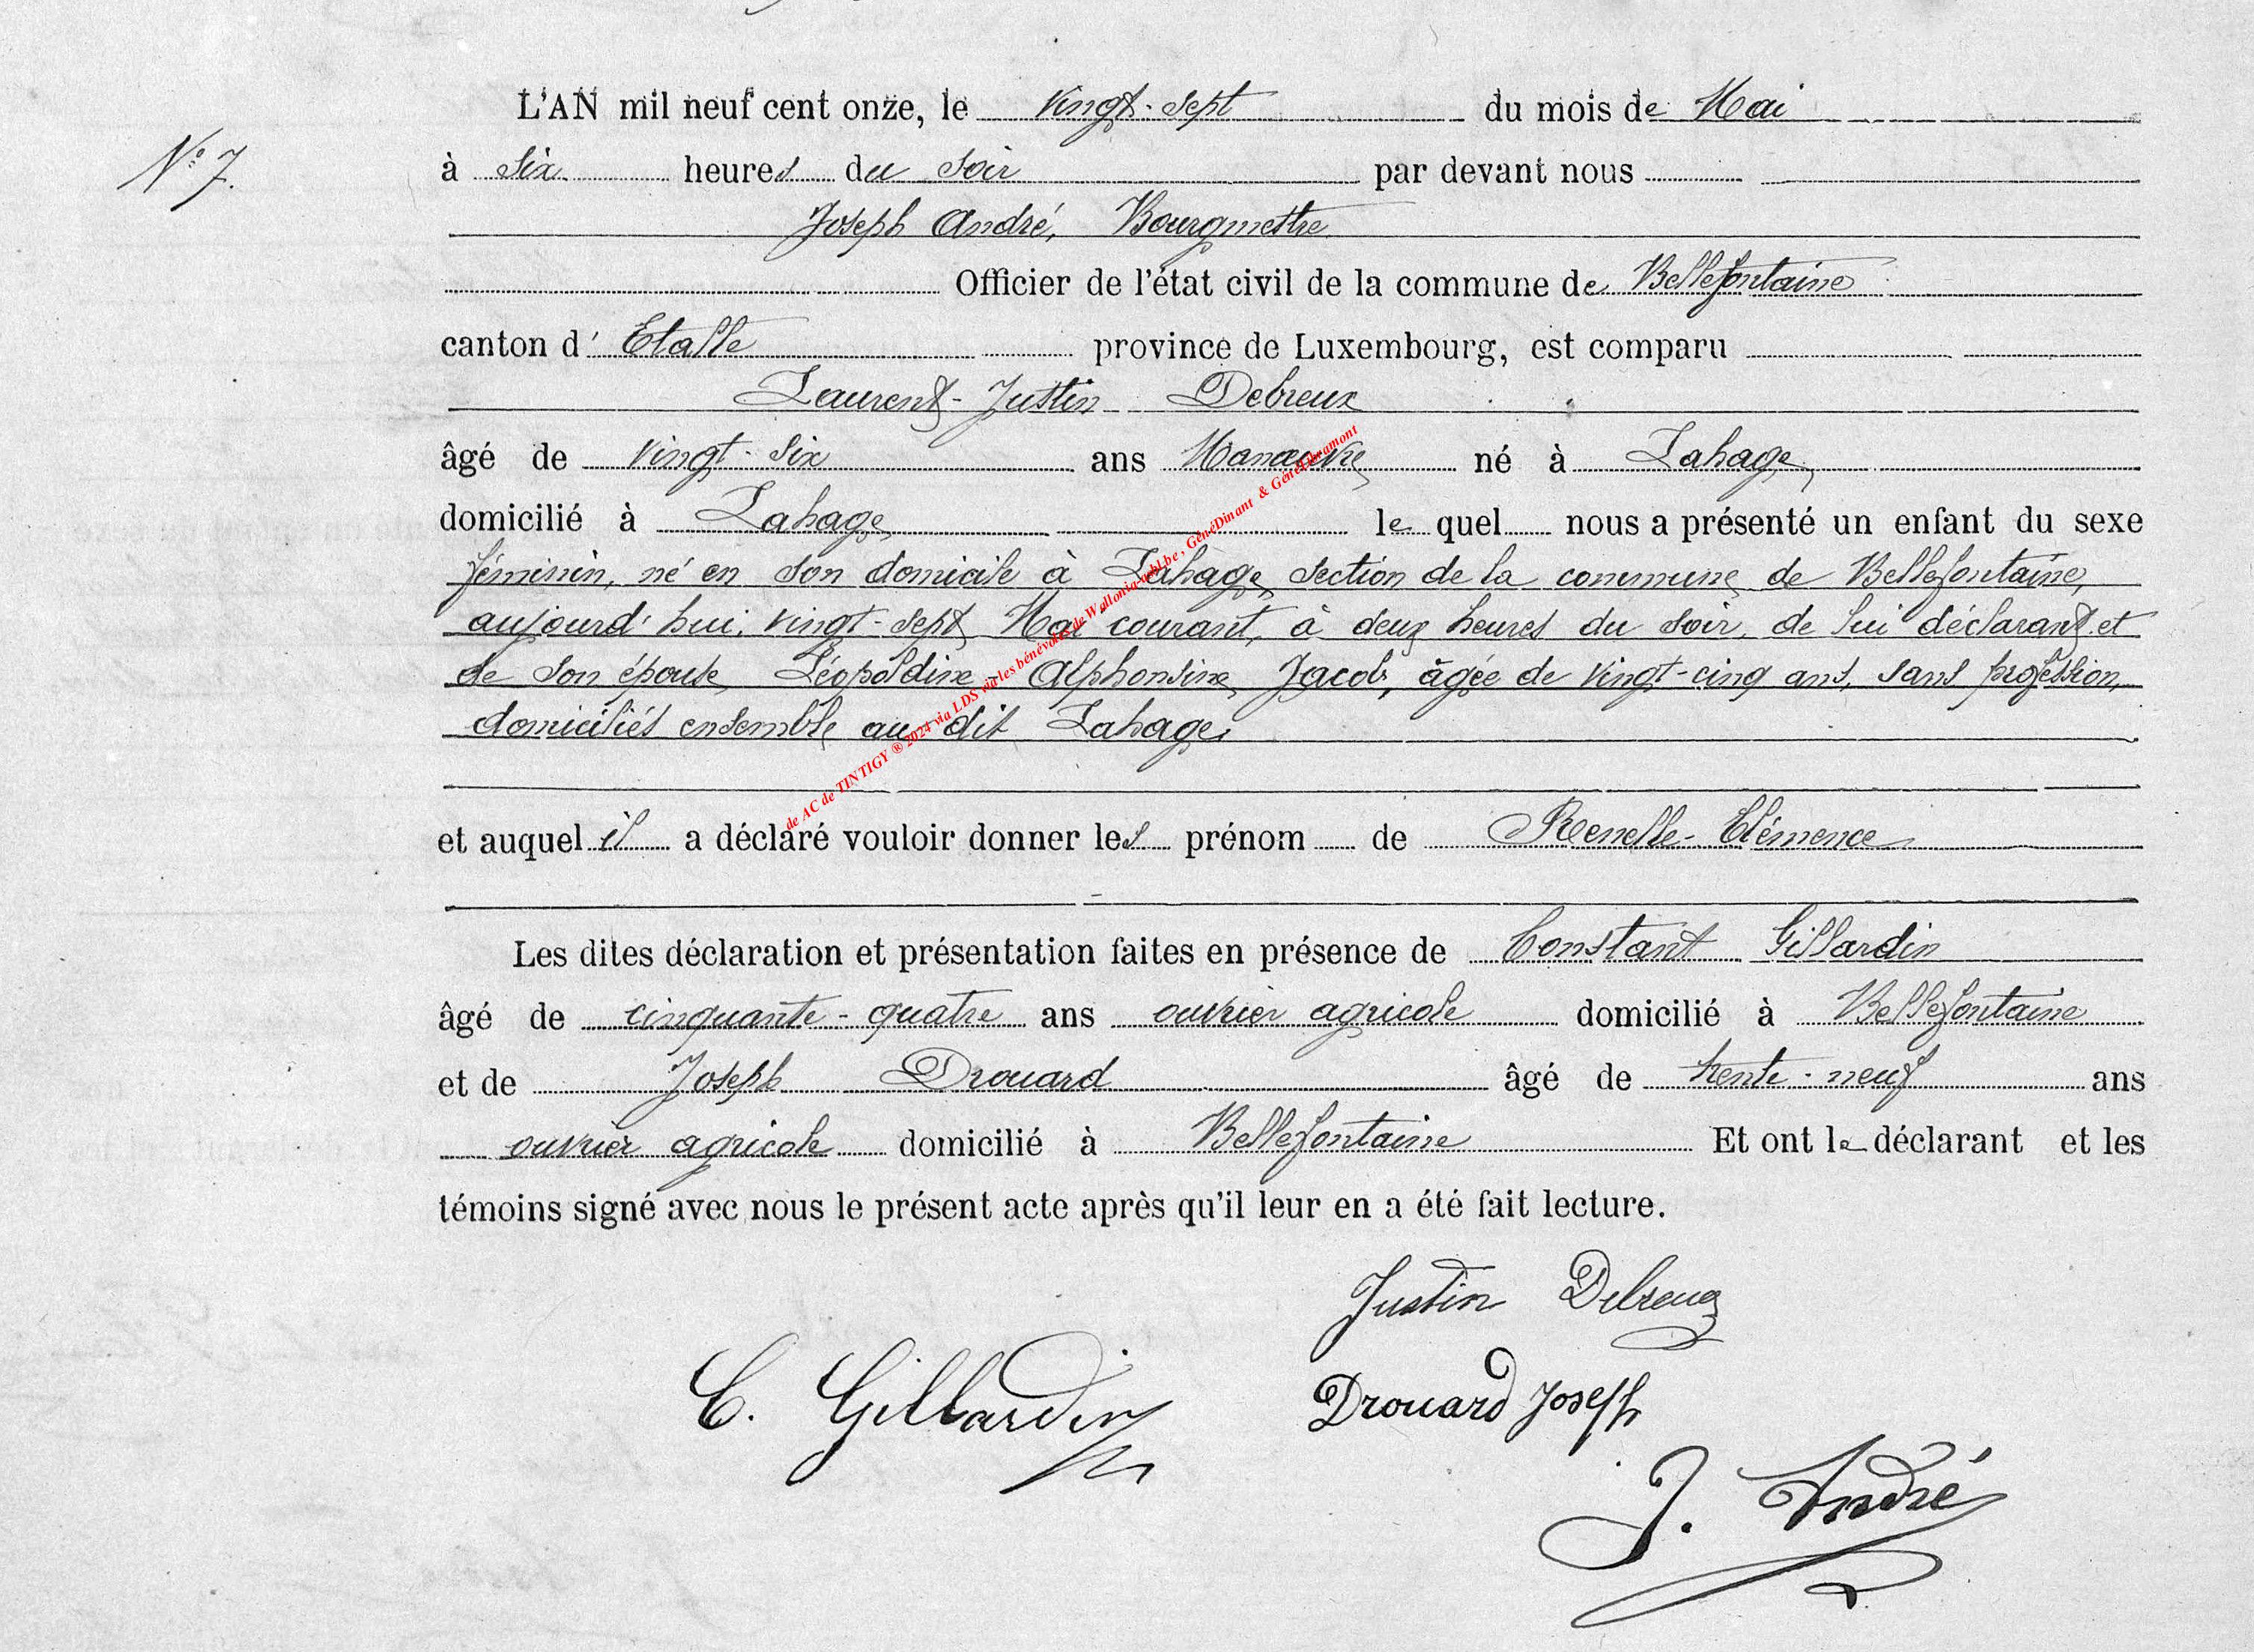 L'AN mil neuf cent onze, le vingt-sept du mois de Mai
N° 7.
à six heures du soir par devant nous
Joseph André, Bourgmestre
Officier de l'état civil de la commune de Bellefontaine
canton d' Etalle province de Luxembourg, est comparu
Laurent-Justin Debreux
âgé de vingt-six ans Manœuvre né à Lahage
domicilié à Lahage lequel nous a présenté un enfant du sexe
féminin, né en son domicile à Lahage, section de la commune de Bellefontaine,
aujourd'hui, vingt-sept Mai courant, à deux heures du soir, de lui déclarant et
de son épouse Léopoldine-Alphonsine Jacob, âgée de vingt-cinq ans, sans profession,
domiciliés ensemble au dit Lahage,
de AC de TINTIGY ® 2024 via LDS via les bénévoles de Wallonia-asbl.be, GénéDinant & GénéLibramont
et auquel il a déclaré vouloir donner les prénom de Renelle-Clémence
Les dites déclaration et présentation faites en présence de Constant Gillardin
âgé de cinquante-quatre ans ouvrier agricole domicilié à Bellefontaine
et de Joseph Drouard âgé de trente-neuf ans
ouvrier agricole domicilié à Bellefontaine Et ont le déclarant et les
témoins signé avec nous le présent acte après qu'il leur en a été fait lecture.
Justin Debreux
C. Gillardin
Drouard Joseph
J. André